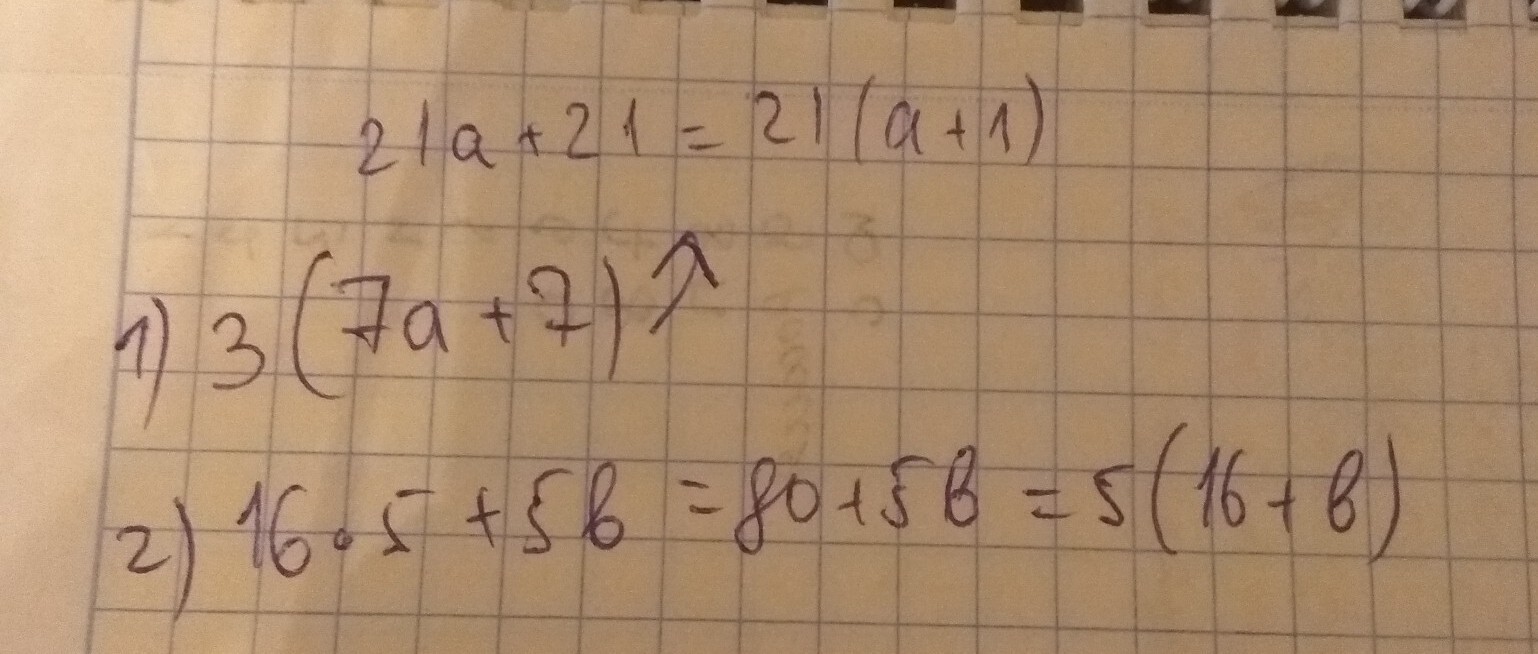 21a+21=21(a+1)
1) 3(7a+7)↗
2) 16•5+5b=80+5b=5(16+b)